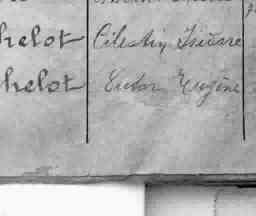 helot Célestin Isidore
helot Victor Eugène